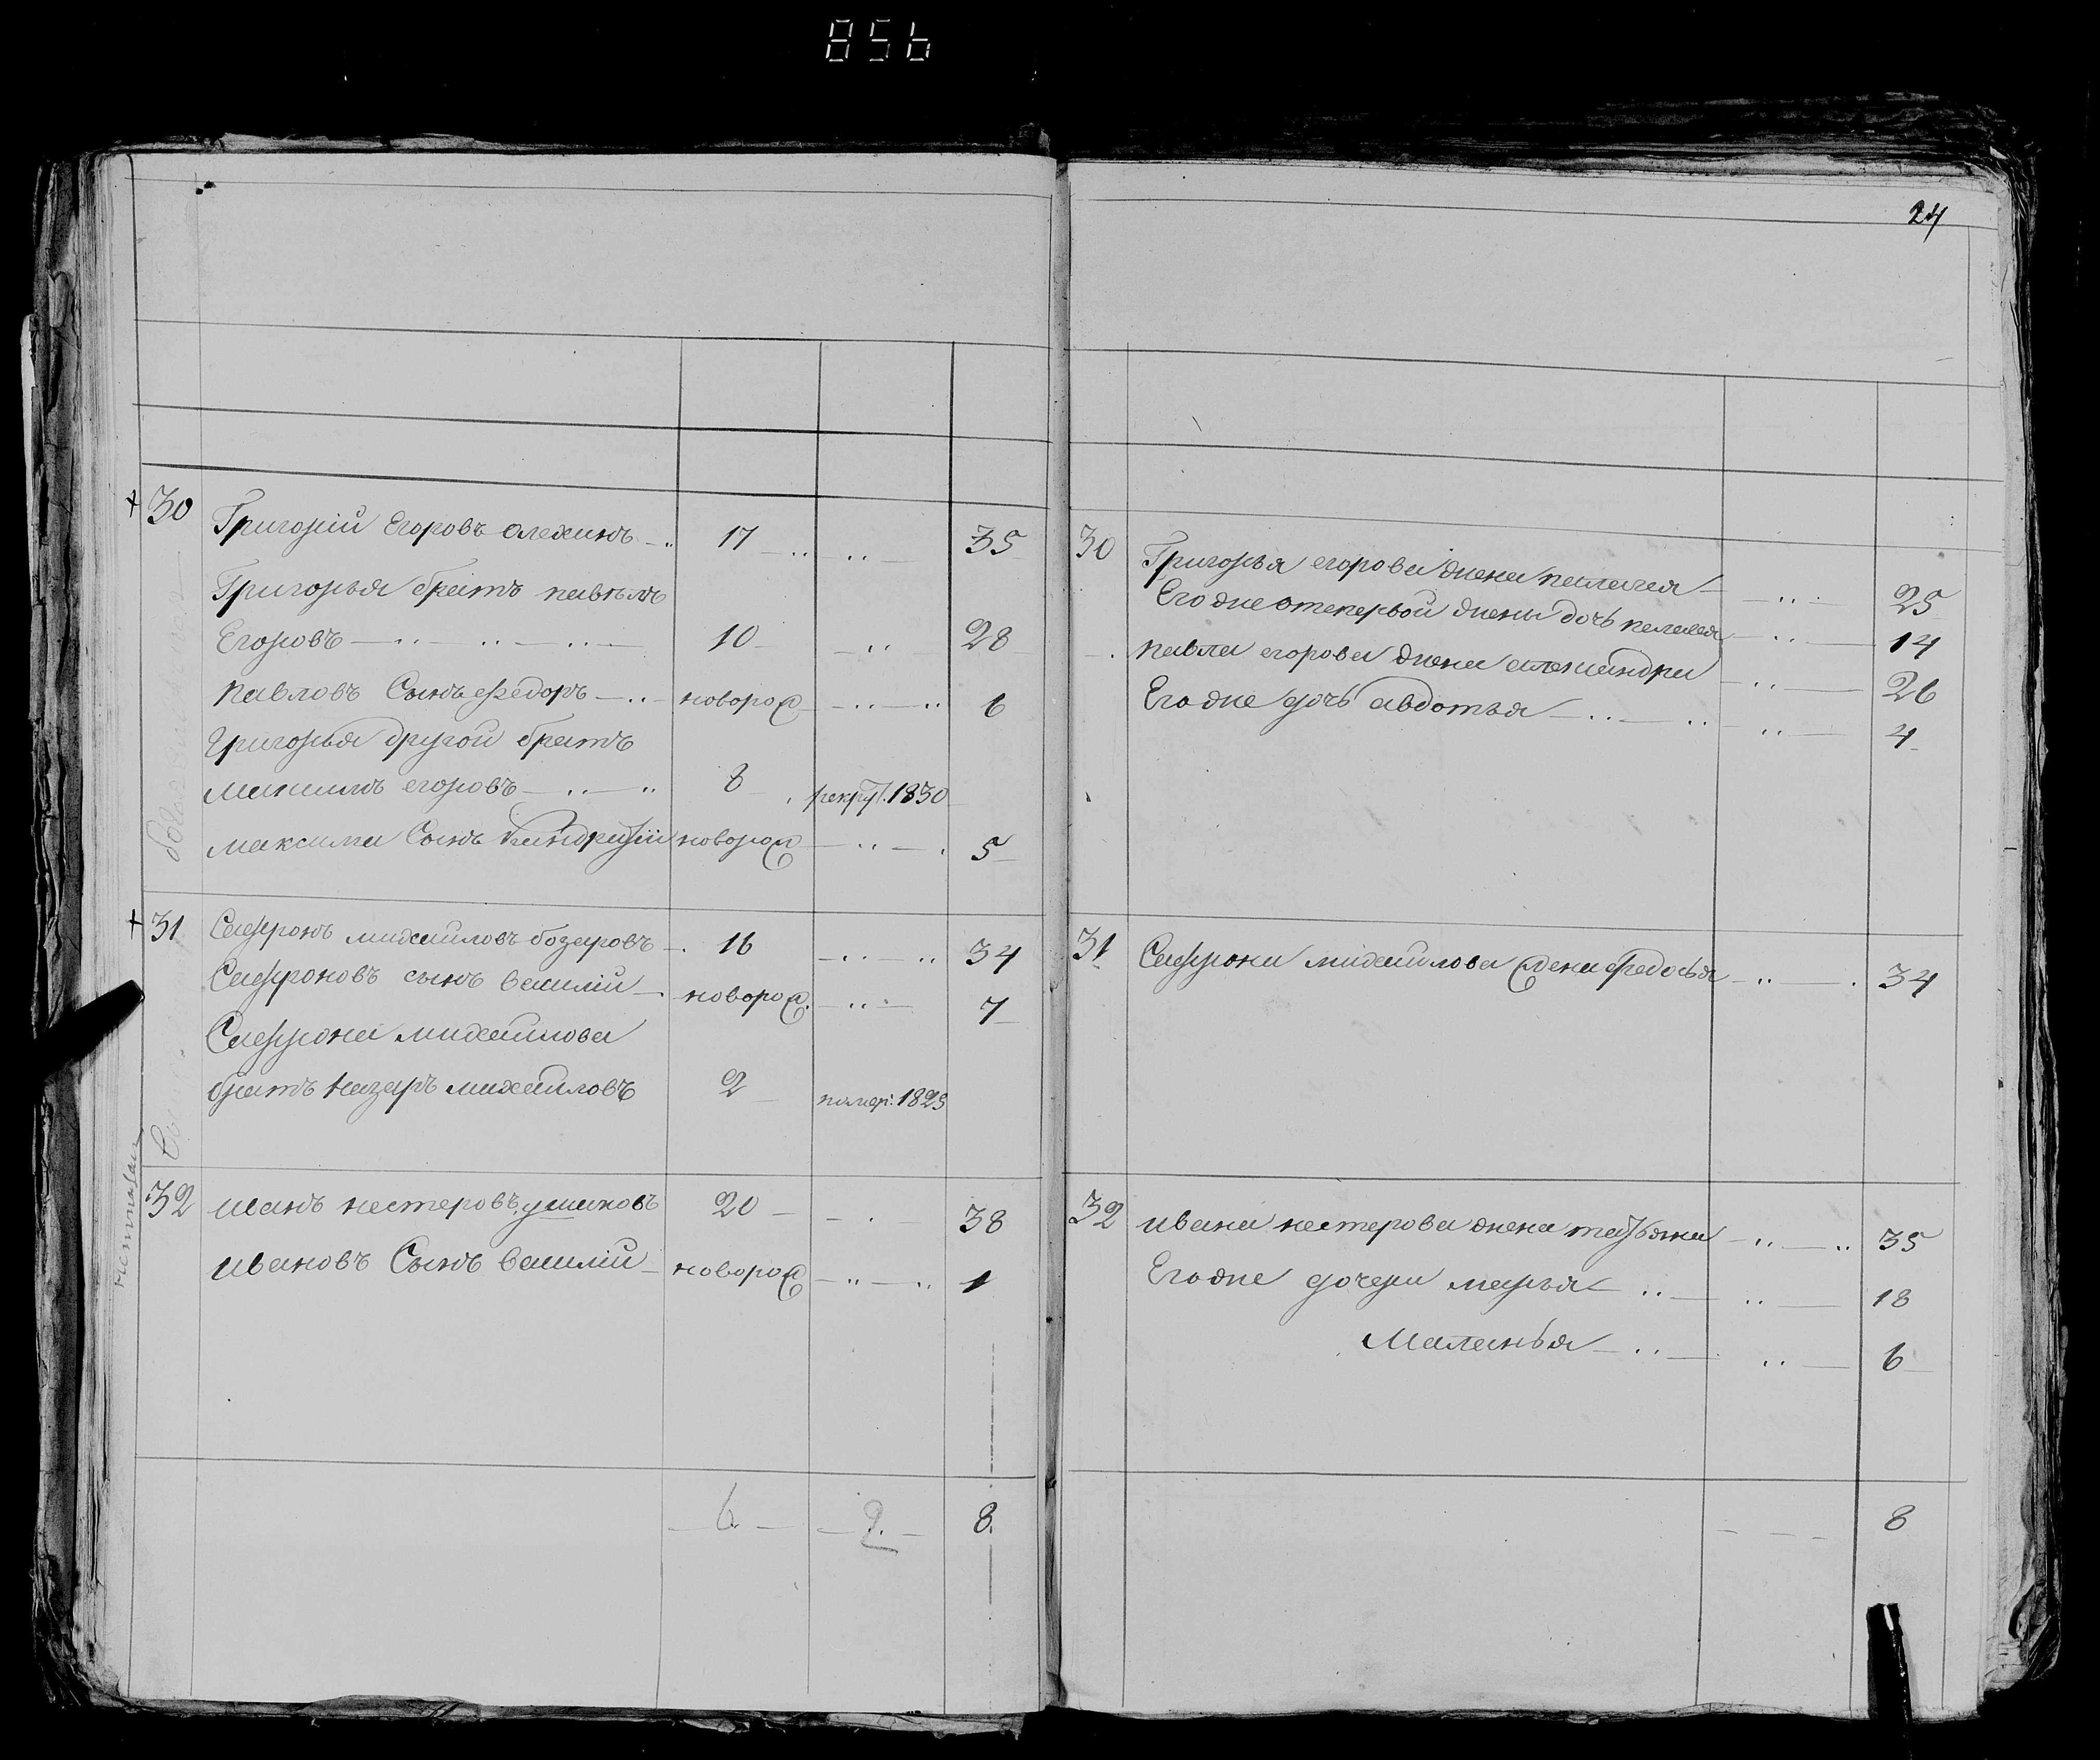 856
30 Григорій Егоровъ Олехинъ 17 35
Григорья братъ павелъ
Егоровъ 10 28
павловъ Сынъ федоръ новорож 6
Григорья другой братъ
максимъ егоровъ 8 рекрут. 1830
максима Сынъ новорож 5
31 Сафронъ михайловъ бозаровъ 16 34
Сафроновъ сынъ василий новорож. 7
Сафрона михайлова
братъ Назаръ михайловъ 2 померъ: 1825
32 иванъ нестеровъ ушаковъ 20 38
ивановъ Сынъ василий новорож 1
6 2 8
24
30 Григорья егорова жена пелагея 25
Его же отъ первой жены дочь пелагея 14
павла егорова жена александра 26
Его же дочь авдотья 4
31 Сафрона михайлова жена федосья 34
32 ивана нестерова жена татьяна 35
Его же дочери марья 18
Маланья 6
8